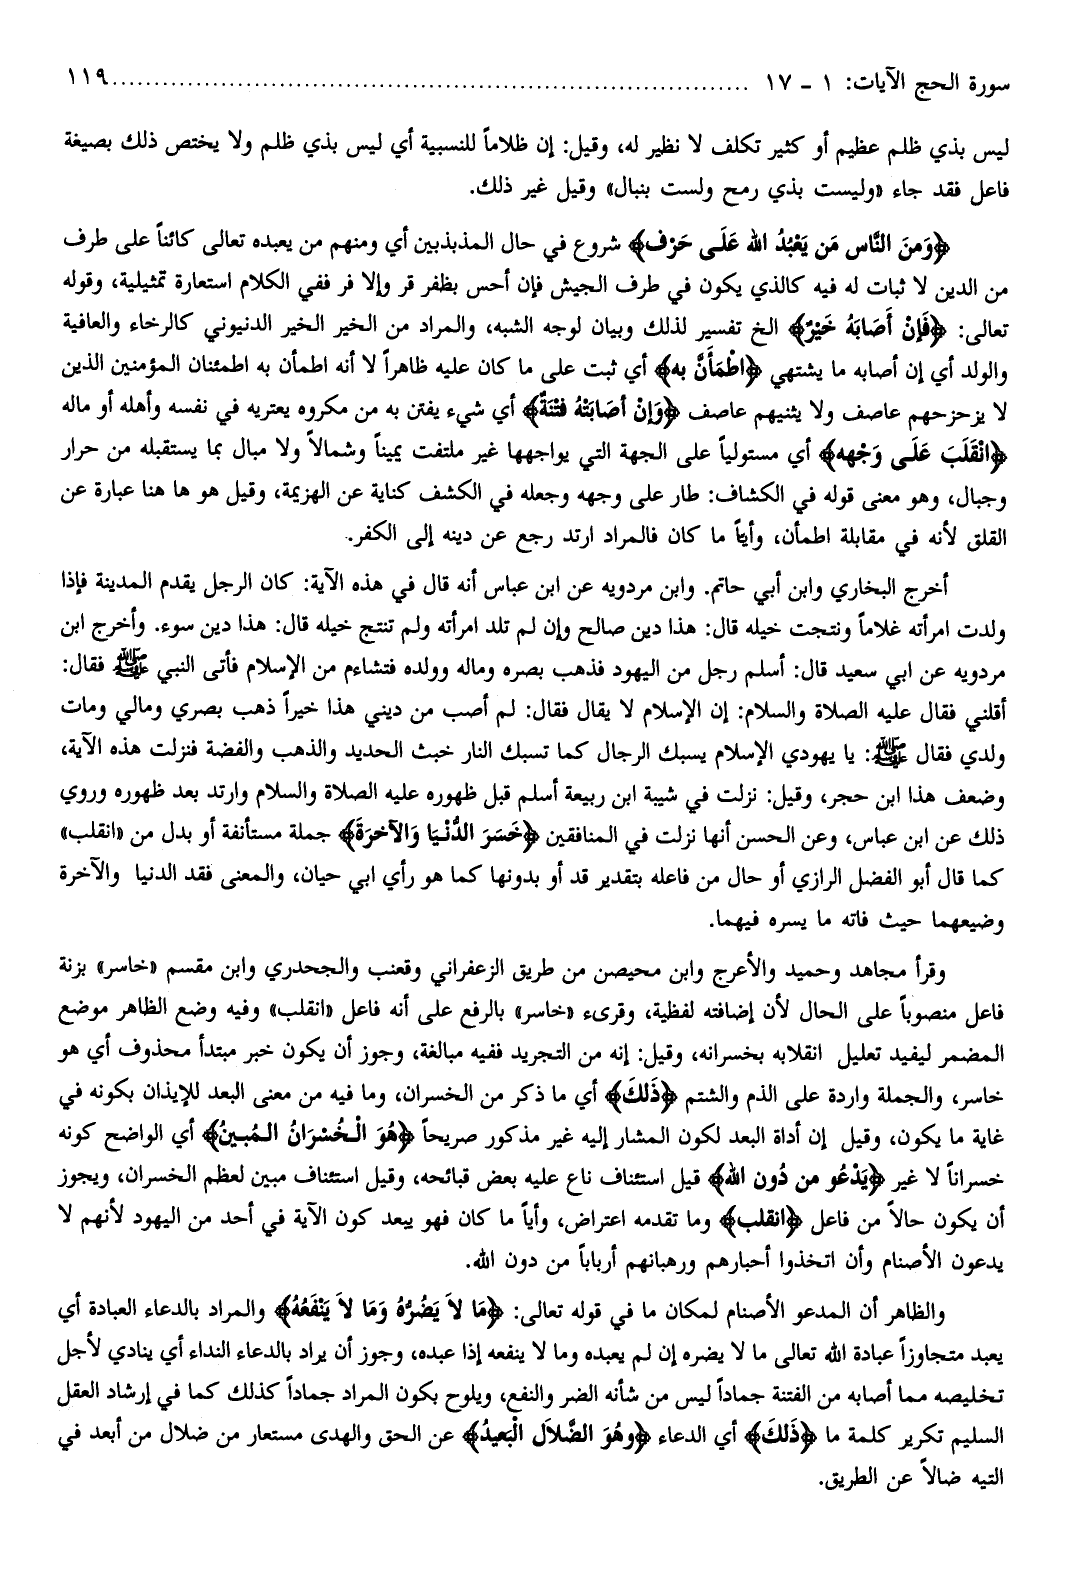 سورة الحج الآيات: ١ - ١٧ ........................................................................... ١١٩
ليس بذي ظلم عظيم أو كثير تكلف لا نظير له، وقيل: إن ظلاماً للنسبية أي ليس بذي ظلم ولا يختص ذلك بصيغة
فاعل فقد جاء «وليست بذي رمح ولست بنبال» وقيل غير ذلك.
﴿وَمِنَ النَّاس مَن يَعْبُدُ الله عَلَـى حَرْف﴾ شروع في حال المذبذبين أي ومنهم من يعبده تعالى كائناً على طرف
من الدين لا ثبات له فيه كالذي يكون في طرف الجيش فإن أحس بظفر قر وإلا فر ففي الكلام استعارة تمثيلية، وقوله
تعالى: ﴿فَإنْ أَصَابَهُ خَيْرٌ﴾ الخ تفسير لذلك وبيان لوجه الشبه، والمراد من الخير الخير الدنيوني كالرخاء والعافية
والولد أي إن أصابه ما يشتهي ﴿اطْمَأَنَّ به﴾ أي ثبت على ما كان عليه ظاهراً لا أنه اطمأن به اطمئنان المؤمنين الذين
لا يزحزحهم عاصف ولا يثنيهم عاصف ﴿وَإنْ أصَابَتْهُ فتْنَةٌ﴾ أي شيء يفتن به من مكروه يعتريه في نفسه وأهله أو ماله
﴿انْقَلَبَ عَلَـى وَجْهه﴾ أي مستولياً على الجهة التي يواجهها غير ملتفت يميناً وشمالاً ولا مبال بما يستقبله من حرار
وجبال، وهو معنى قوله في الكشاف: طار على وجهه وجعله في الكشف كناية عن الهزيمة، وقيل هو ها هنا عبارة عن
القلق لأنه في مقابلة اطمأن، وأياً ما كان فالمراد ارتد رجع عن دينه إلى الكفر.
أخرج البخاري وابن أبي حاتم. وابن مردويه عن ابن عباس أنه قال في هذه الآية: كان الرجل يقدم المدينة فإذا
ولدت امرأته غلاماً ونتجت خيله قال: هذا دين صالح وإن لم تلد امرأته ولم تنتج خيله قال: هذا دين سوء. وأخرج ابن
مردويه عن ابي سعيد قال: أسلم رجل من اليهود فذهب بصره وماله وولده فتشاءم من الإسلام فأتى النبي ﷺ فقال:
أقلني فقال عليه الصلاة والسلام: إن الإسلام لا يقال فقال: لم أصب من ديني هذا خيراً ذهب بصري ومالي ومات
ولدي فقال ﷺ: يا يهودي الإسلام يسبك الرجال كما تسبك النار خبث الحديد والذهب والفضة فنزلت هذه الآية،
وضعف هذا ابن حجر، وقيل: نزلت في شيبة ابن ربيعة أسلم قبل ظهوره عليه الصلاة والسلام وارتد بعد ظهوره وروي
ذلك عن ابن عباس، وعن الحسن أنها نزلت في المنافقين ﴿خَسرَ الدُّنْـيَا وَالآخرَةَ﴾ جملة مستأنفة أو بدل من «انقلب»
كما قال أبو الفضل الرازي أو حال من فاعله بتقدير قد أو بدونها كما هو رأي ابي حيان، والمعنى فقد الدنيا والآخرة
وضيعهما حيث فاته ما يسره فيهما.
وقرأ مجاهد وحميد والأعرج وابن محيصن من طريق الزعفراني وقعنب والجحدري وابن مقسم «خاسر» بزنة
فاعل منصوباً على الحال لأن إضافته لفظية، وقرىء «خاسر» بالرفع على أنه فاعل «انقلب» وفيه وضع الظاهر موضع
المضمر ليفيد تعليل انقلابه بخسرانه، وقيل: إنه من التجريد ففيه مبالغة، وجوز أن يكون خبر مبتدأ محذوف أي هو
خاسر، والجملة واردة على الذم والشتم ﴿ذَلكَ﴾ أي ما ذكر من الخسران، وما فيه من معنى البعد للإيذان بكونه في
غاية ما يكون، وقيل إن أداة البعد لكون المشار إليه غير مذكور صريحاً ﴿هُوَ الْـخُسْرَانُ الـمُبـينُ﴾ أي الواضح كونه
خسراناً لا غير ﴿يَدْعُو من دُون الله﴾ قيل استئناف ناع عليه بعض قبائحه، وقيل استئناف مبين لعظم الخسران، ويجوز
أن يكون حالاً من فاعل ﴿انقلب﴾ وما تقدمه اعتراض، وأياً ما كان فهو يبعد كون الآية في أحد من اليهود لأنهم لا
يدعون الأصنام وأن اتخذوا أحبارهم ورهبانهم أرباباً من دون الله.
والظاهر أن المدعو الأصنام لمكان ما في قوله تعالى: ﴿مَا لاَ يَضُرُّهُ وَمَا لاَ يَنْفَعُهُ﴾ والمراد بالدعاء العبادة أي
يعبد متجاوزاً عبادة الله تعالى ما لا يضره إن لم يعبده وما لا ينفعه إذا عبده، وجوز أن يراد بالدعاء النداء أي ينادي لأجل
تخليصه مما أصابه من الفتنة جماداً ليس من شأنه الضر والنفع، ويلوح بكون المراد جماداً كذلك كما في إرشاد العقل
السليم تكرير كلمة ما ﴿ذَلكَ﴾ أي الدعاء ﴿وهُوَ الضَّلاَل الْبَعيدُ﴾ عن الحق والهدى مستعار من ضلال من أبعد في
التيه ضالاً عن الطريق.